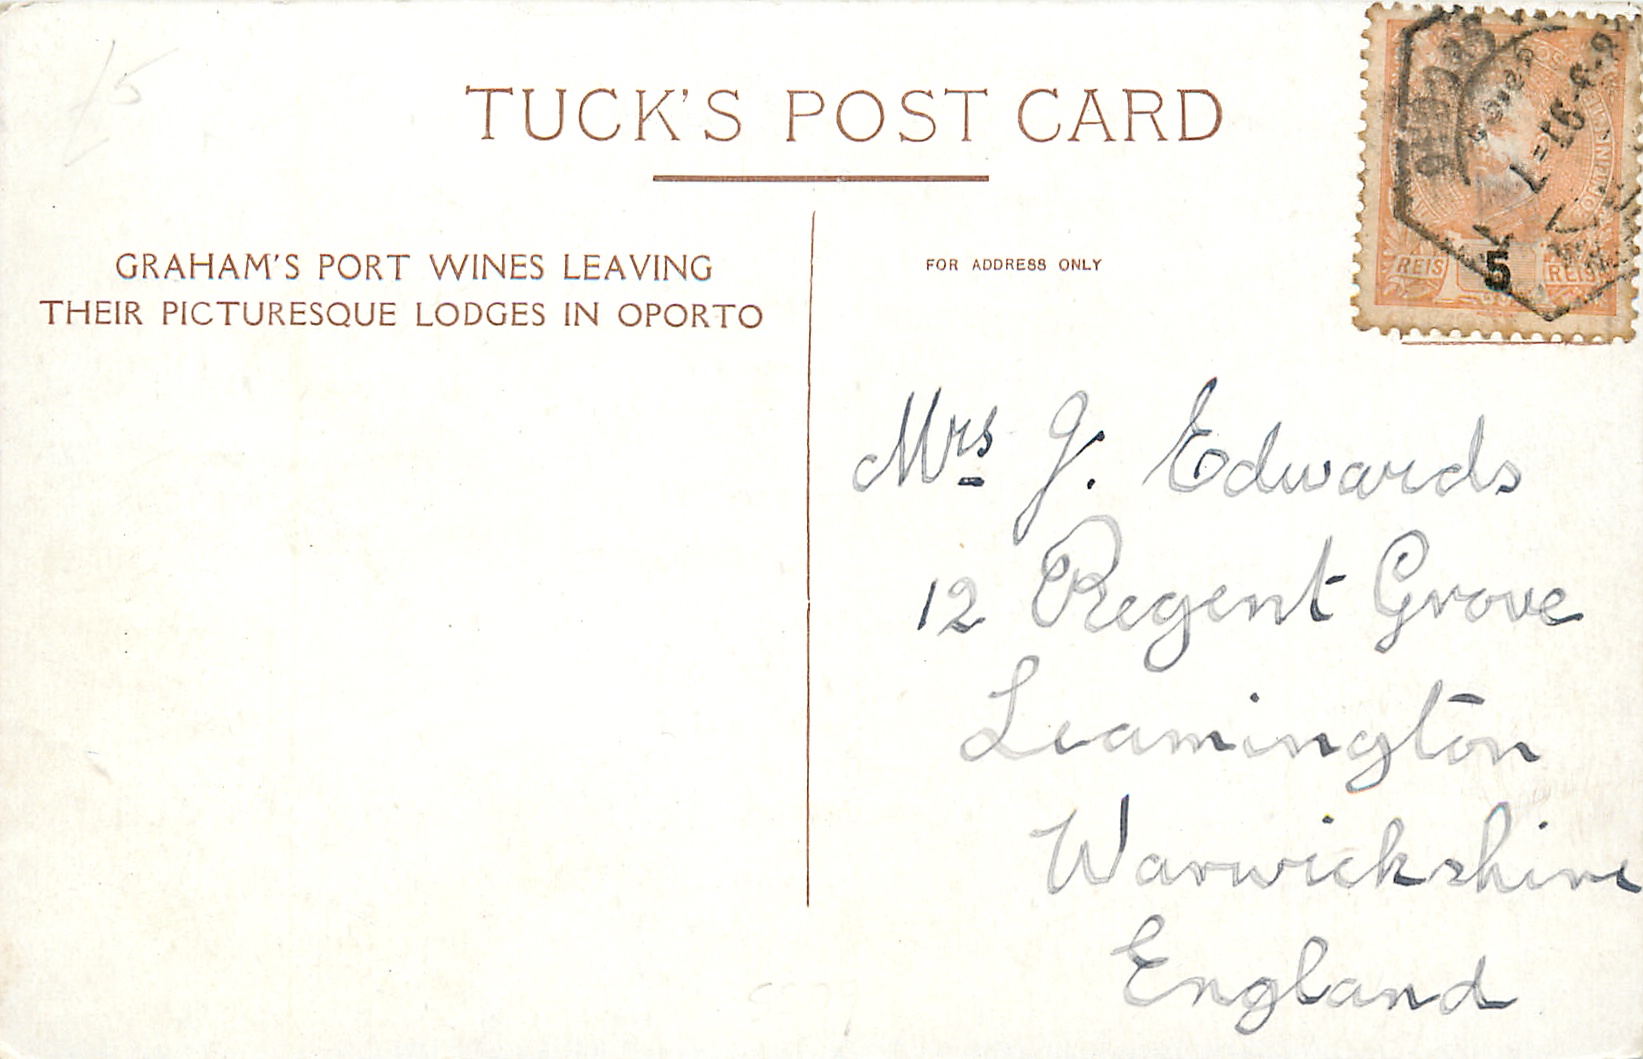 TUCK'S POST CARD
GRAHAM'S PORT WINES LEAVING
THEIR PICTURESQUE LODGES IN OPORTO
FOR ADDRESS ONLY
REIS 5 REIS
Mrs J. Edwards
12 Regent Grove
Leamington
Warwickshire
England